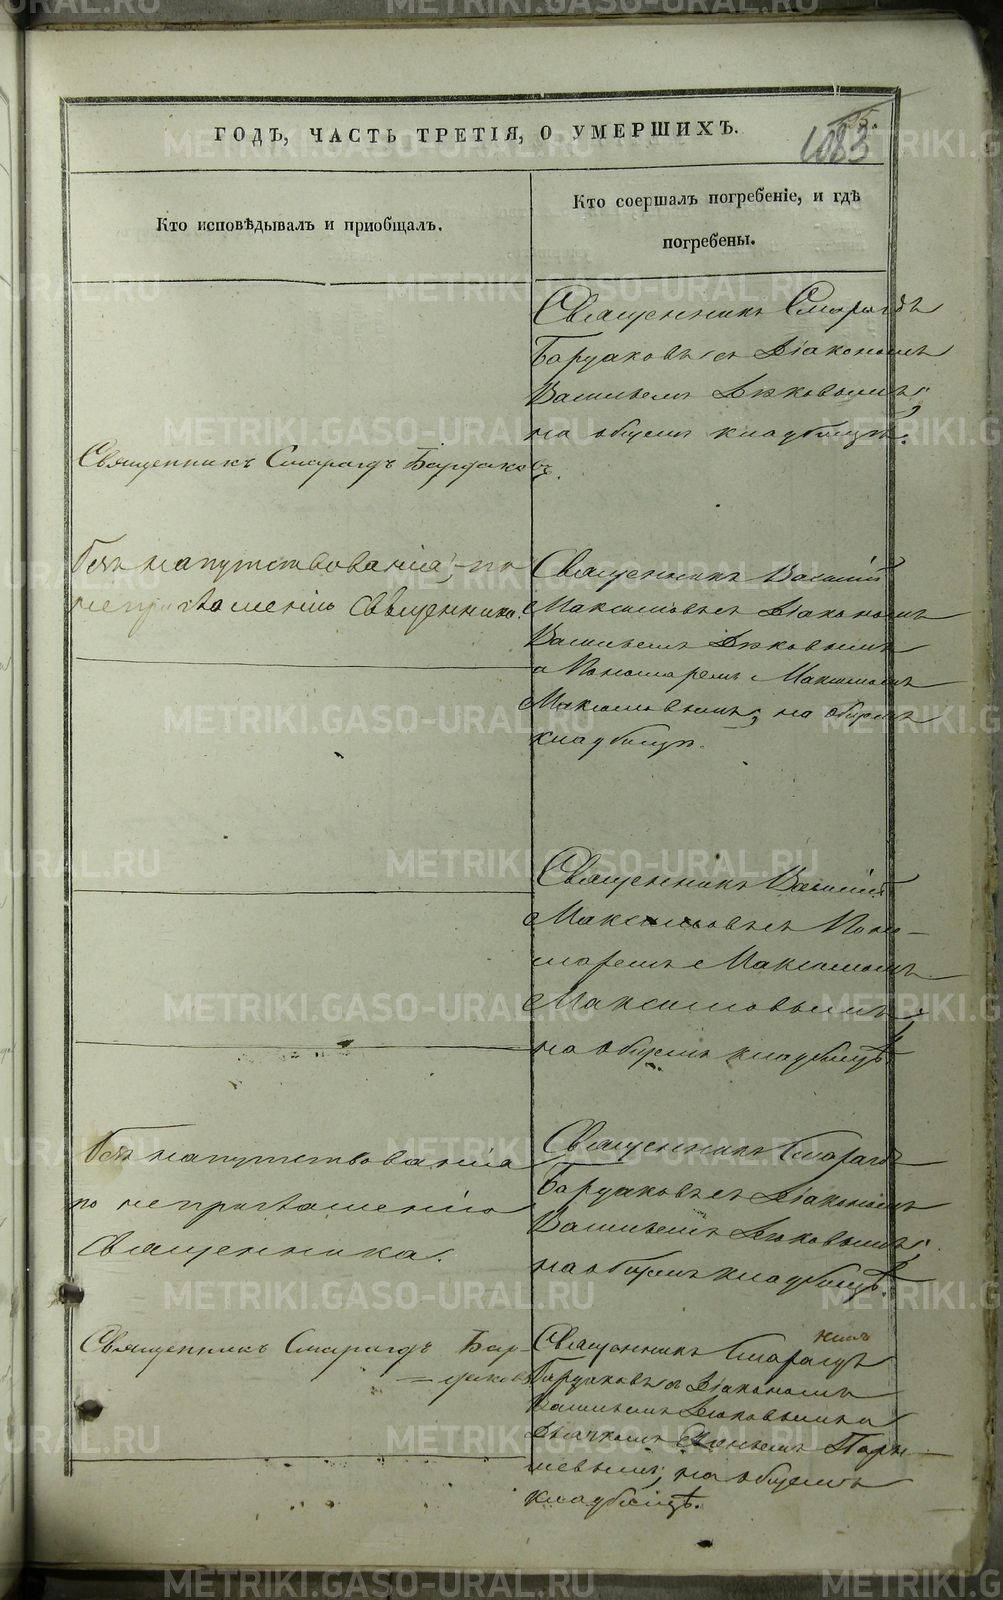 ГОДЪ, ЧАСТЬ ТРЕТІЯ, О УМЕРШИХЪ.
1083
Кто исповѣдывалъ и пріобщалъ.
Кто соершалъ погребеніе, и гдѣ
погребены.
Священникъ Смарагдъ
Бардаковъ съ Діакономъ
Васильемъ
на общемъ кладбищѣ.
Священникъ Смарагдъ Бардаковъ.
безъ напутствованія, по
неприглашенію Священника.
Священникъ Василій
Максимовъ съ Діакономъ
Васильемъ
и Пономаремъ Максимомъ
Максимовымъ, на общемъ
кладбищѣ.
Священникъ Василій
Максимовъ съ Поно-
маремъ Максимомъ
Максимовымъ,
на общемъ кладбищѣ.
безъ напутствованія
по неприглашенію
Священника.
Священникъ Смарагдъ
Бардаковъ съ Діакономъ
Васильемъ
на общемъ кладбищѣ.
Священникъ Смарагдъ Бар-
даковъ
Священникъ Смарагдъ
Бардаковъ съ Діакономъ
Васильемъ и
Дьячкомъ
на общемъ
кладбищѣ.
METRIKI.GASO-URAL.RU